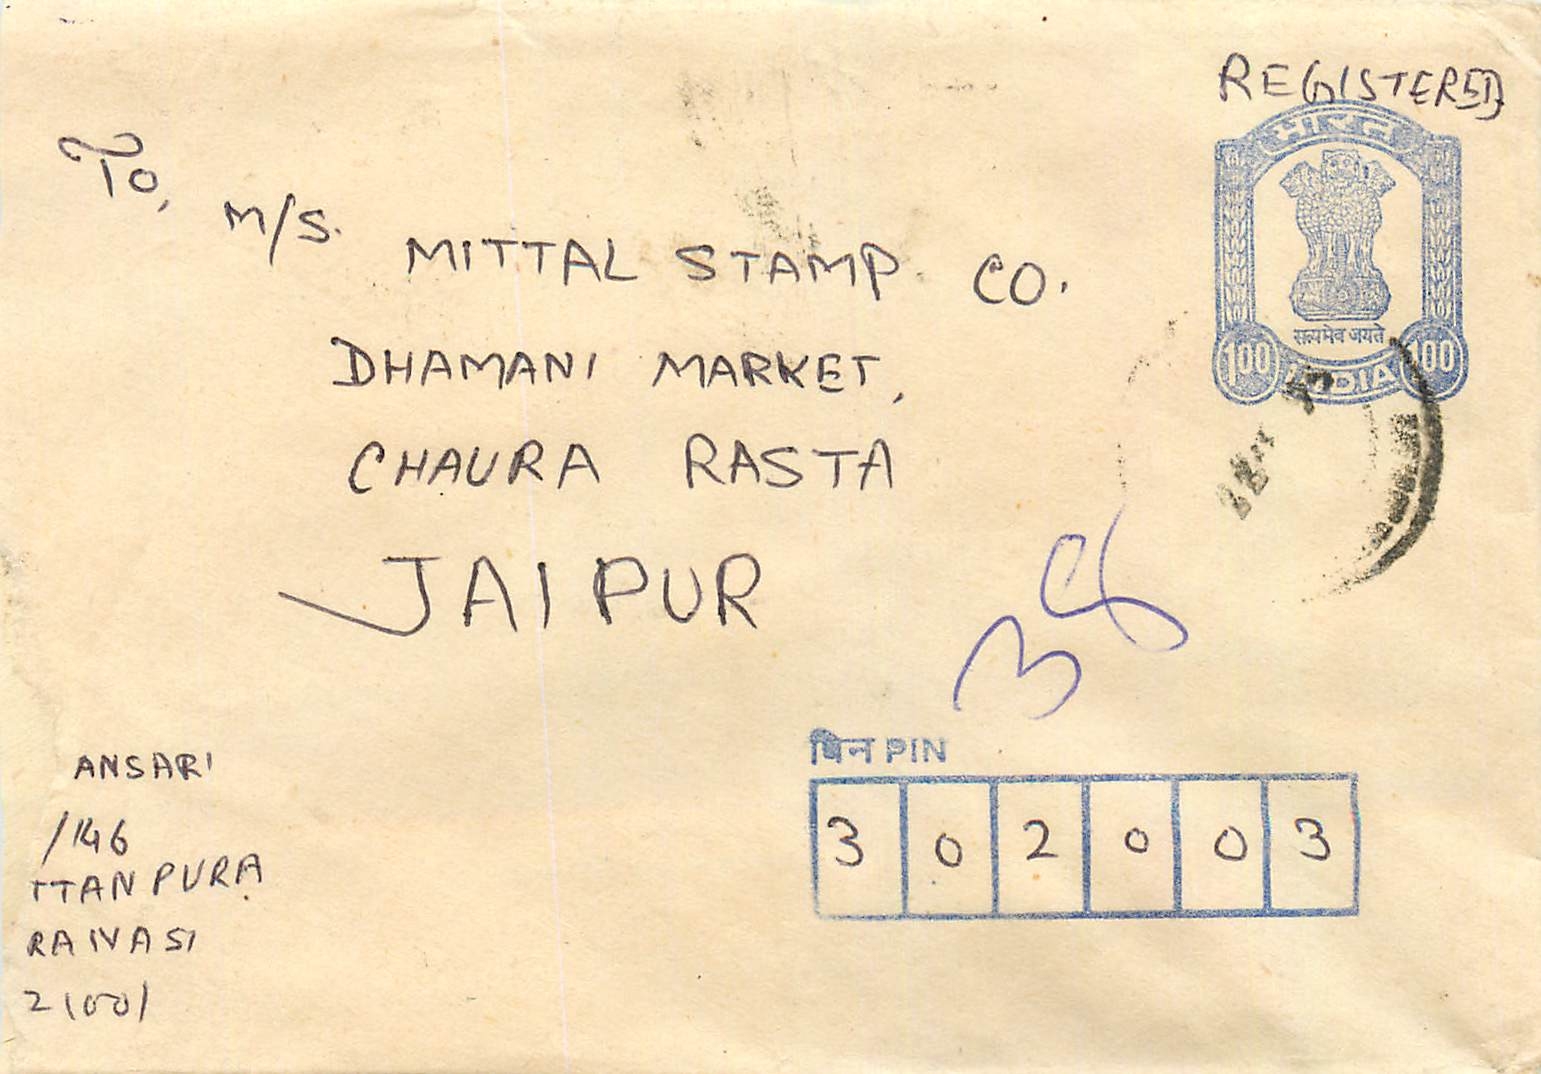 REGISTERED
भारत
सत्यमेव जयते
100 INDIA 100
To,
M/S. MITTAL STAMP CO.
DHAMANI MARKET,
CHAURA RASTA
JAIPUR
38
पिन PIN
3 0 2 0 0 3
ANSARI
/146
TTANPURA
RANASI
21001